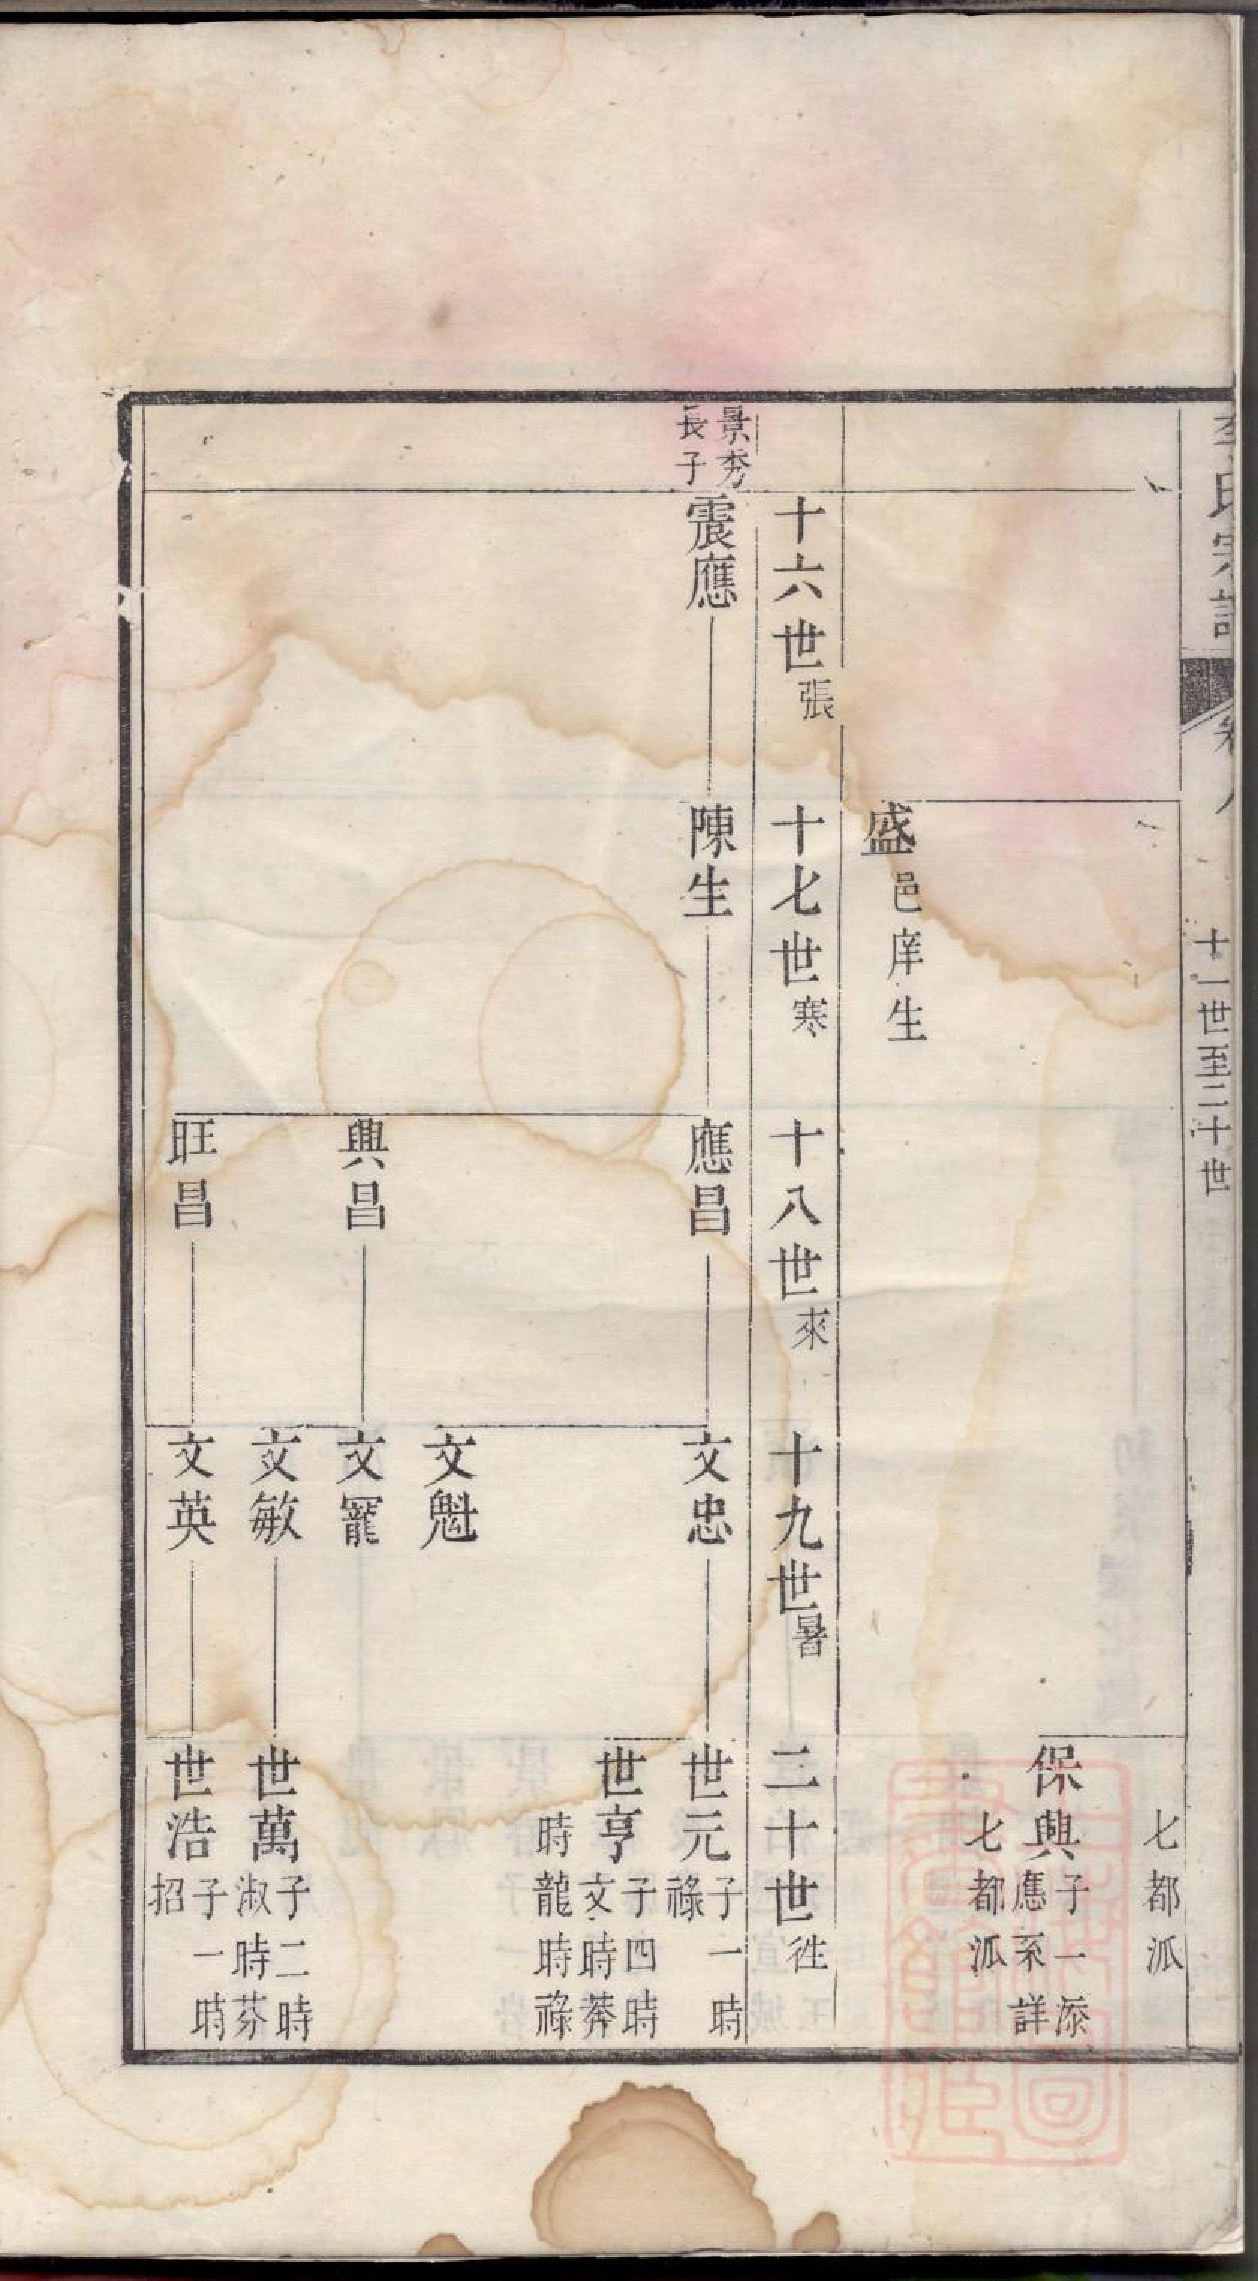 李氏宗譜
卷八
十一世至二十世
七都派
盛邑庠生
保興子一添
應系詳
七都派
十六世張
十七世寒
十八世來
十九世暑
二十世徃
景秀
長子
震應
陳生
應昌
興昌
旺昌
文忠
文魁
文寵
文敏
文英
世元子一時
祿
世亨子四時
文時莾
時龍時祿
世萬子二時
淑時芬
世浩子一時
招